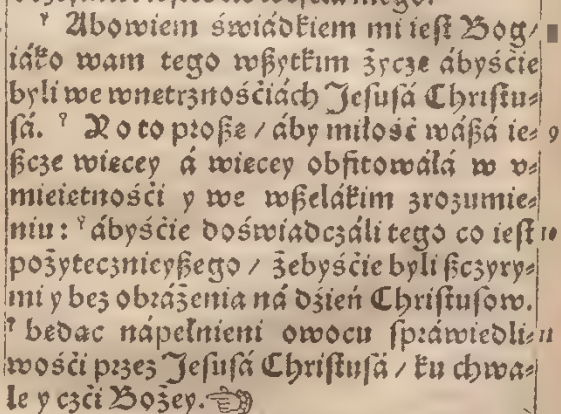 Abowiem świádkiem mi ieſt Bog/
iáko wam tego wßytkim życzę ábyśćie
byli we wnętrznośćiách Jeſuſá Chriſtu⸗
ſá. Y o to proßę / áby miłość wáßá ie⸗ 9
ßcze więcey á więcey obfitowáłá w v⸗
mieiętnośći y we wßelákim zrozumie⸗
niu : ábyśćie doświadczáli tego co ieſt 10
pożytecznieyßego / żebyśćie byli ßczyry⸗
mi y bez obráżenia ná dźień Chriſtuſow.
będąc nápełnieni owocu ſpráwiedli⸗ 11
wośći przez Jeſuſá Chriſtuſá / ku chwa⸗
le y czći Bożey.